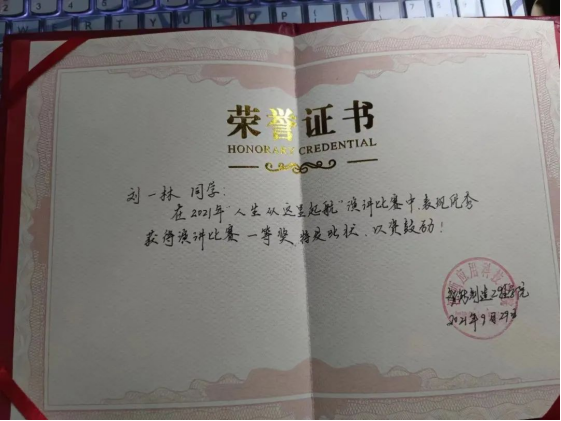 荣誉证书
HONORARY CREDENTIAL
刘一林 同学:
在2021年"人生从这里起航"演讲比赛中,表现优秀
获得演讲比赛 一等奖,特发此状,以资鼓励!
智能制造工程学院
2021年9月29日